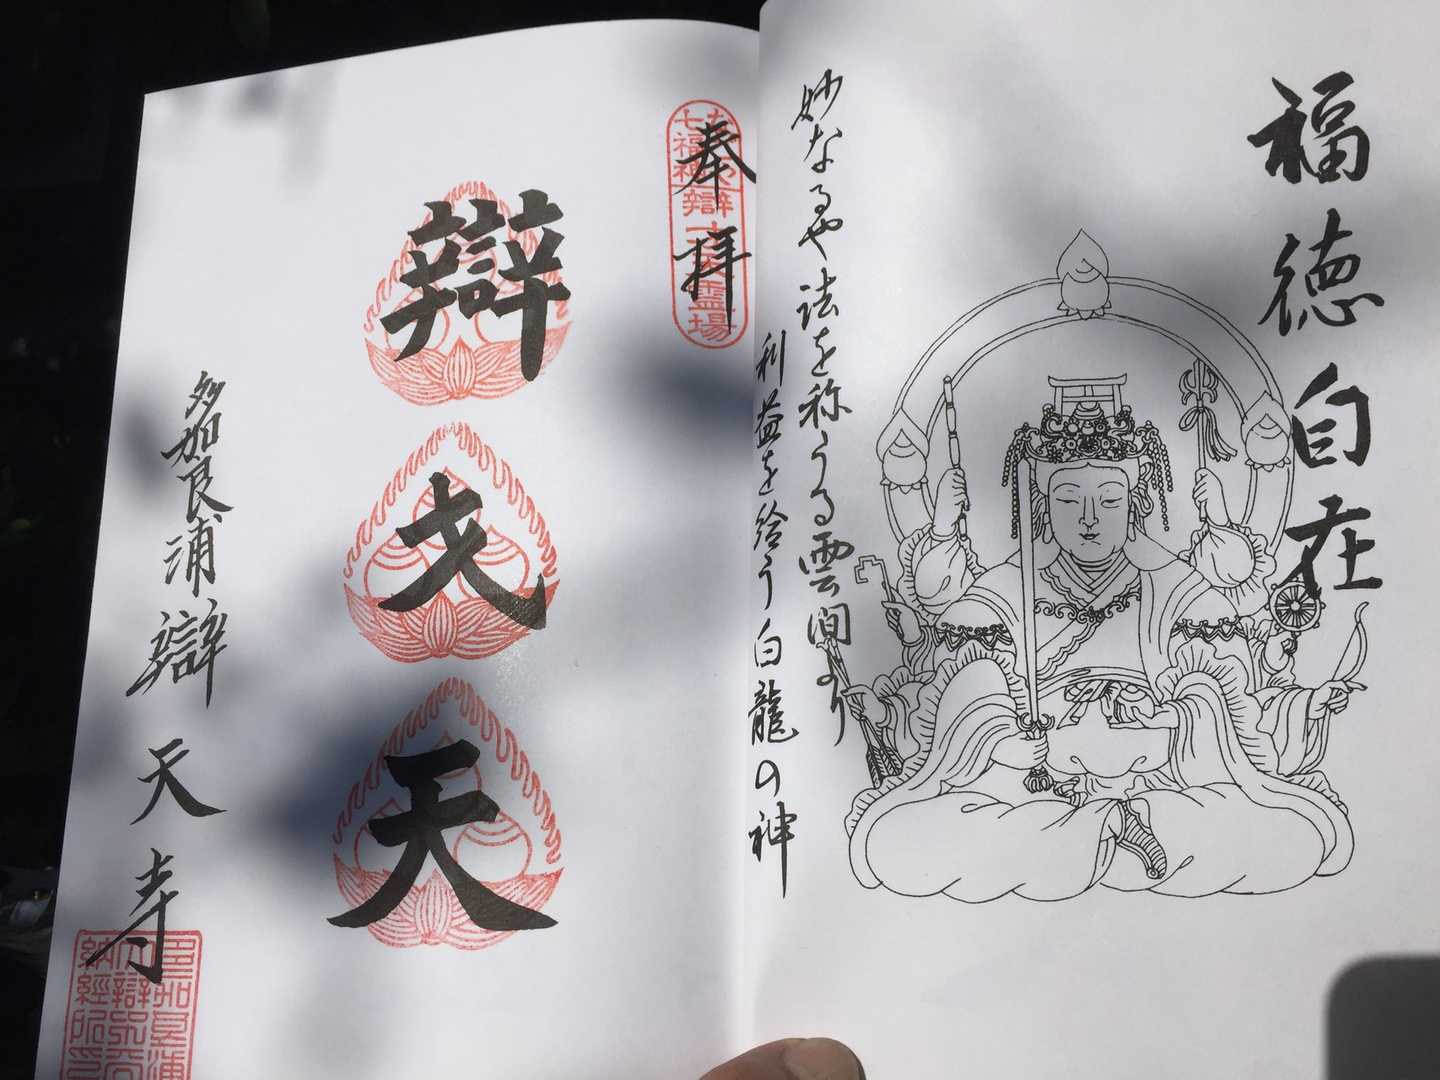 福徳自在
妙なるや法を称うる雲間より
利益を給う白龍の神
奉拝
七福神 辯 霊場
辯才天
多加良浦辯天寺
納経所